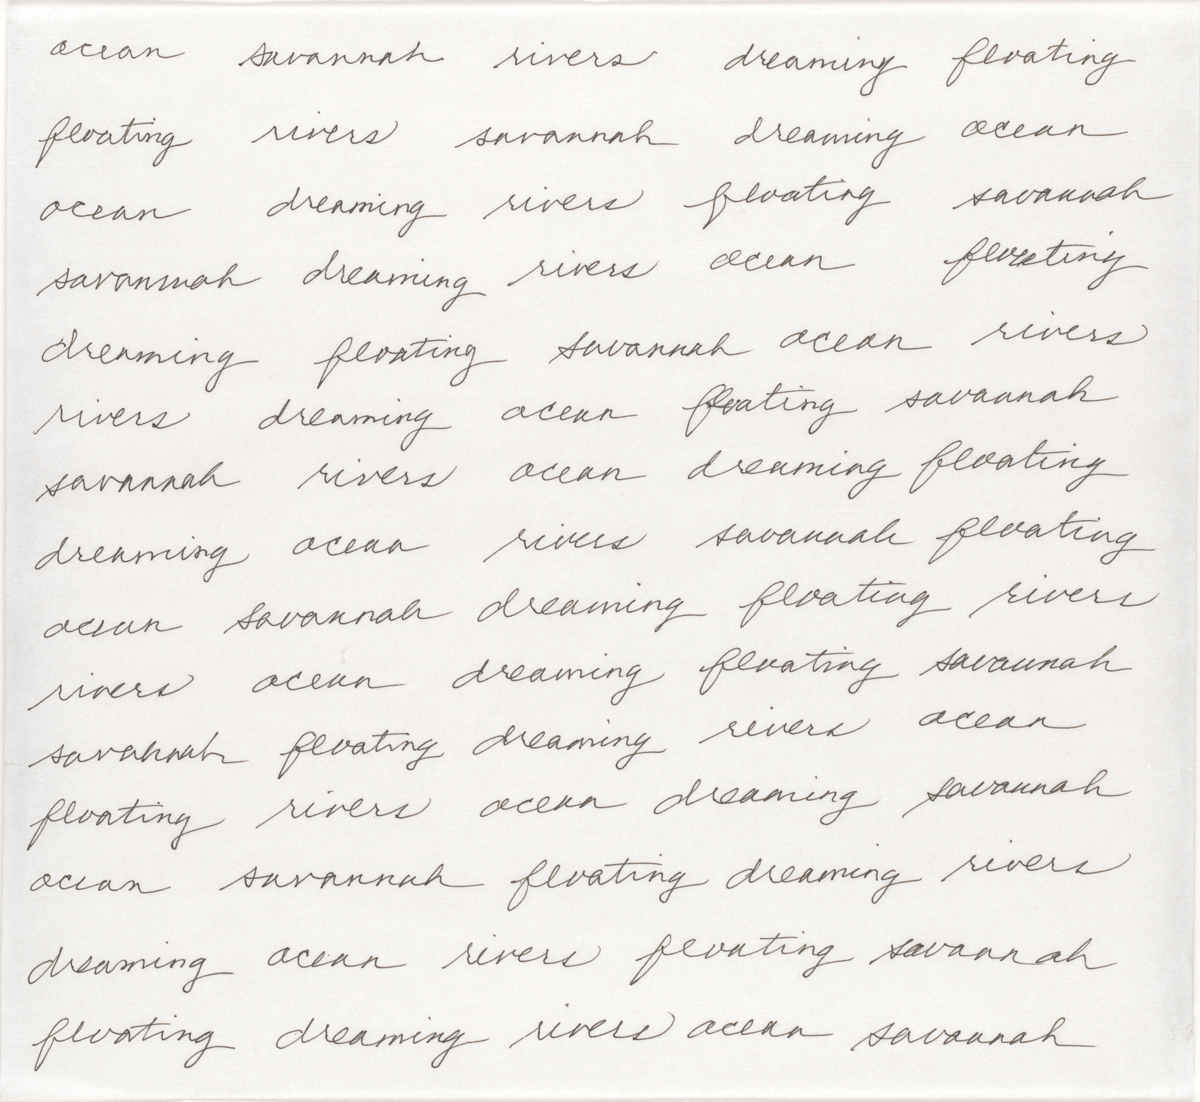 ocean savannah rivers dreaming floating
floating rivers savannah dreaming ocean
ocean dreaming rivers floating savannah
savannah dreaming rivers ocean floating
dreaming floating savannah ocean rivers
rivers dreaming ocean floating savannah
savannah rivers ocean dreaming floating
dreaming ocean rivers savannah floating
ocean savannah dreaming floating rivers
rivers ocean dreaming floating savannah
savannah floating dreaming rivers ocean
floating rivers ocean dreaming savannah
ocean savannah floating dreaming rivers
dreaming ocean rivers floating savannah
floating dreaming rivers ocean savannah